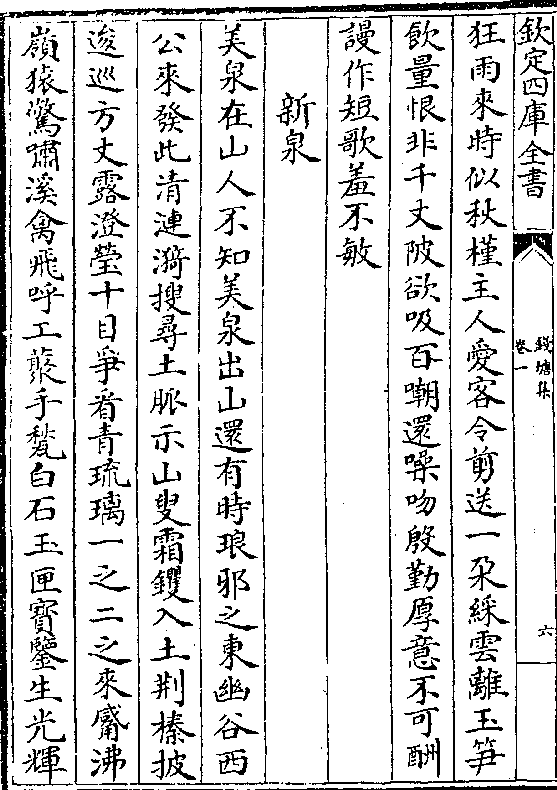 欽定四庫全書
錢塘集
卷一
六
狂雨來時似秋槿主人愛客令剪送一朶綵雲離玉笋
飲量恨非千丈陂欲吸百嘲還噪吻殷勤厚意不可酬
謾作短歌羞不敏
新泉
美泉在山人不知美泉出山還有時琅邪之東幽谷西
公來發此清漣漪搜尋土脈示山叟霜钁入土荆榛披
逡巡方丈露澄瑩十目爭看青琉璃一之二之來觱沸
嶺猿驚嘯溪禽飛呼工藂手甃白石玉匣寳鑒生光輝